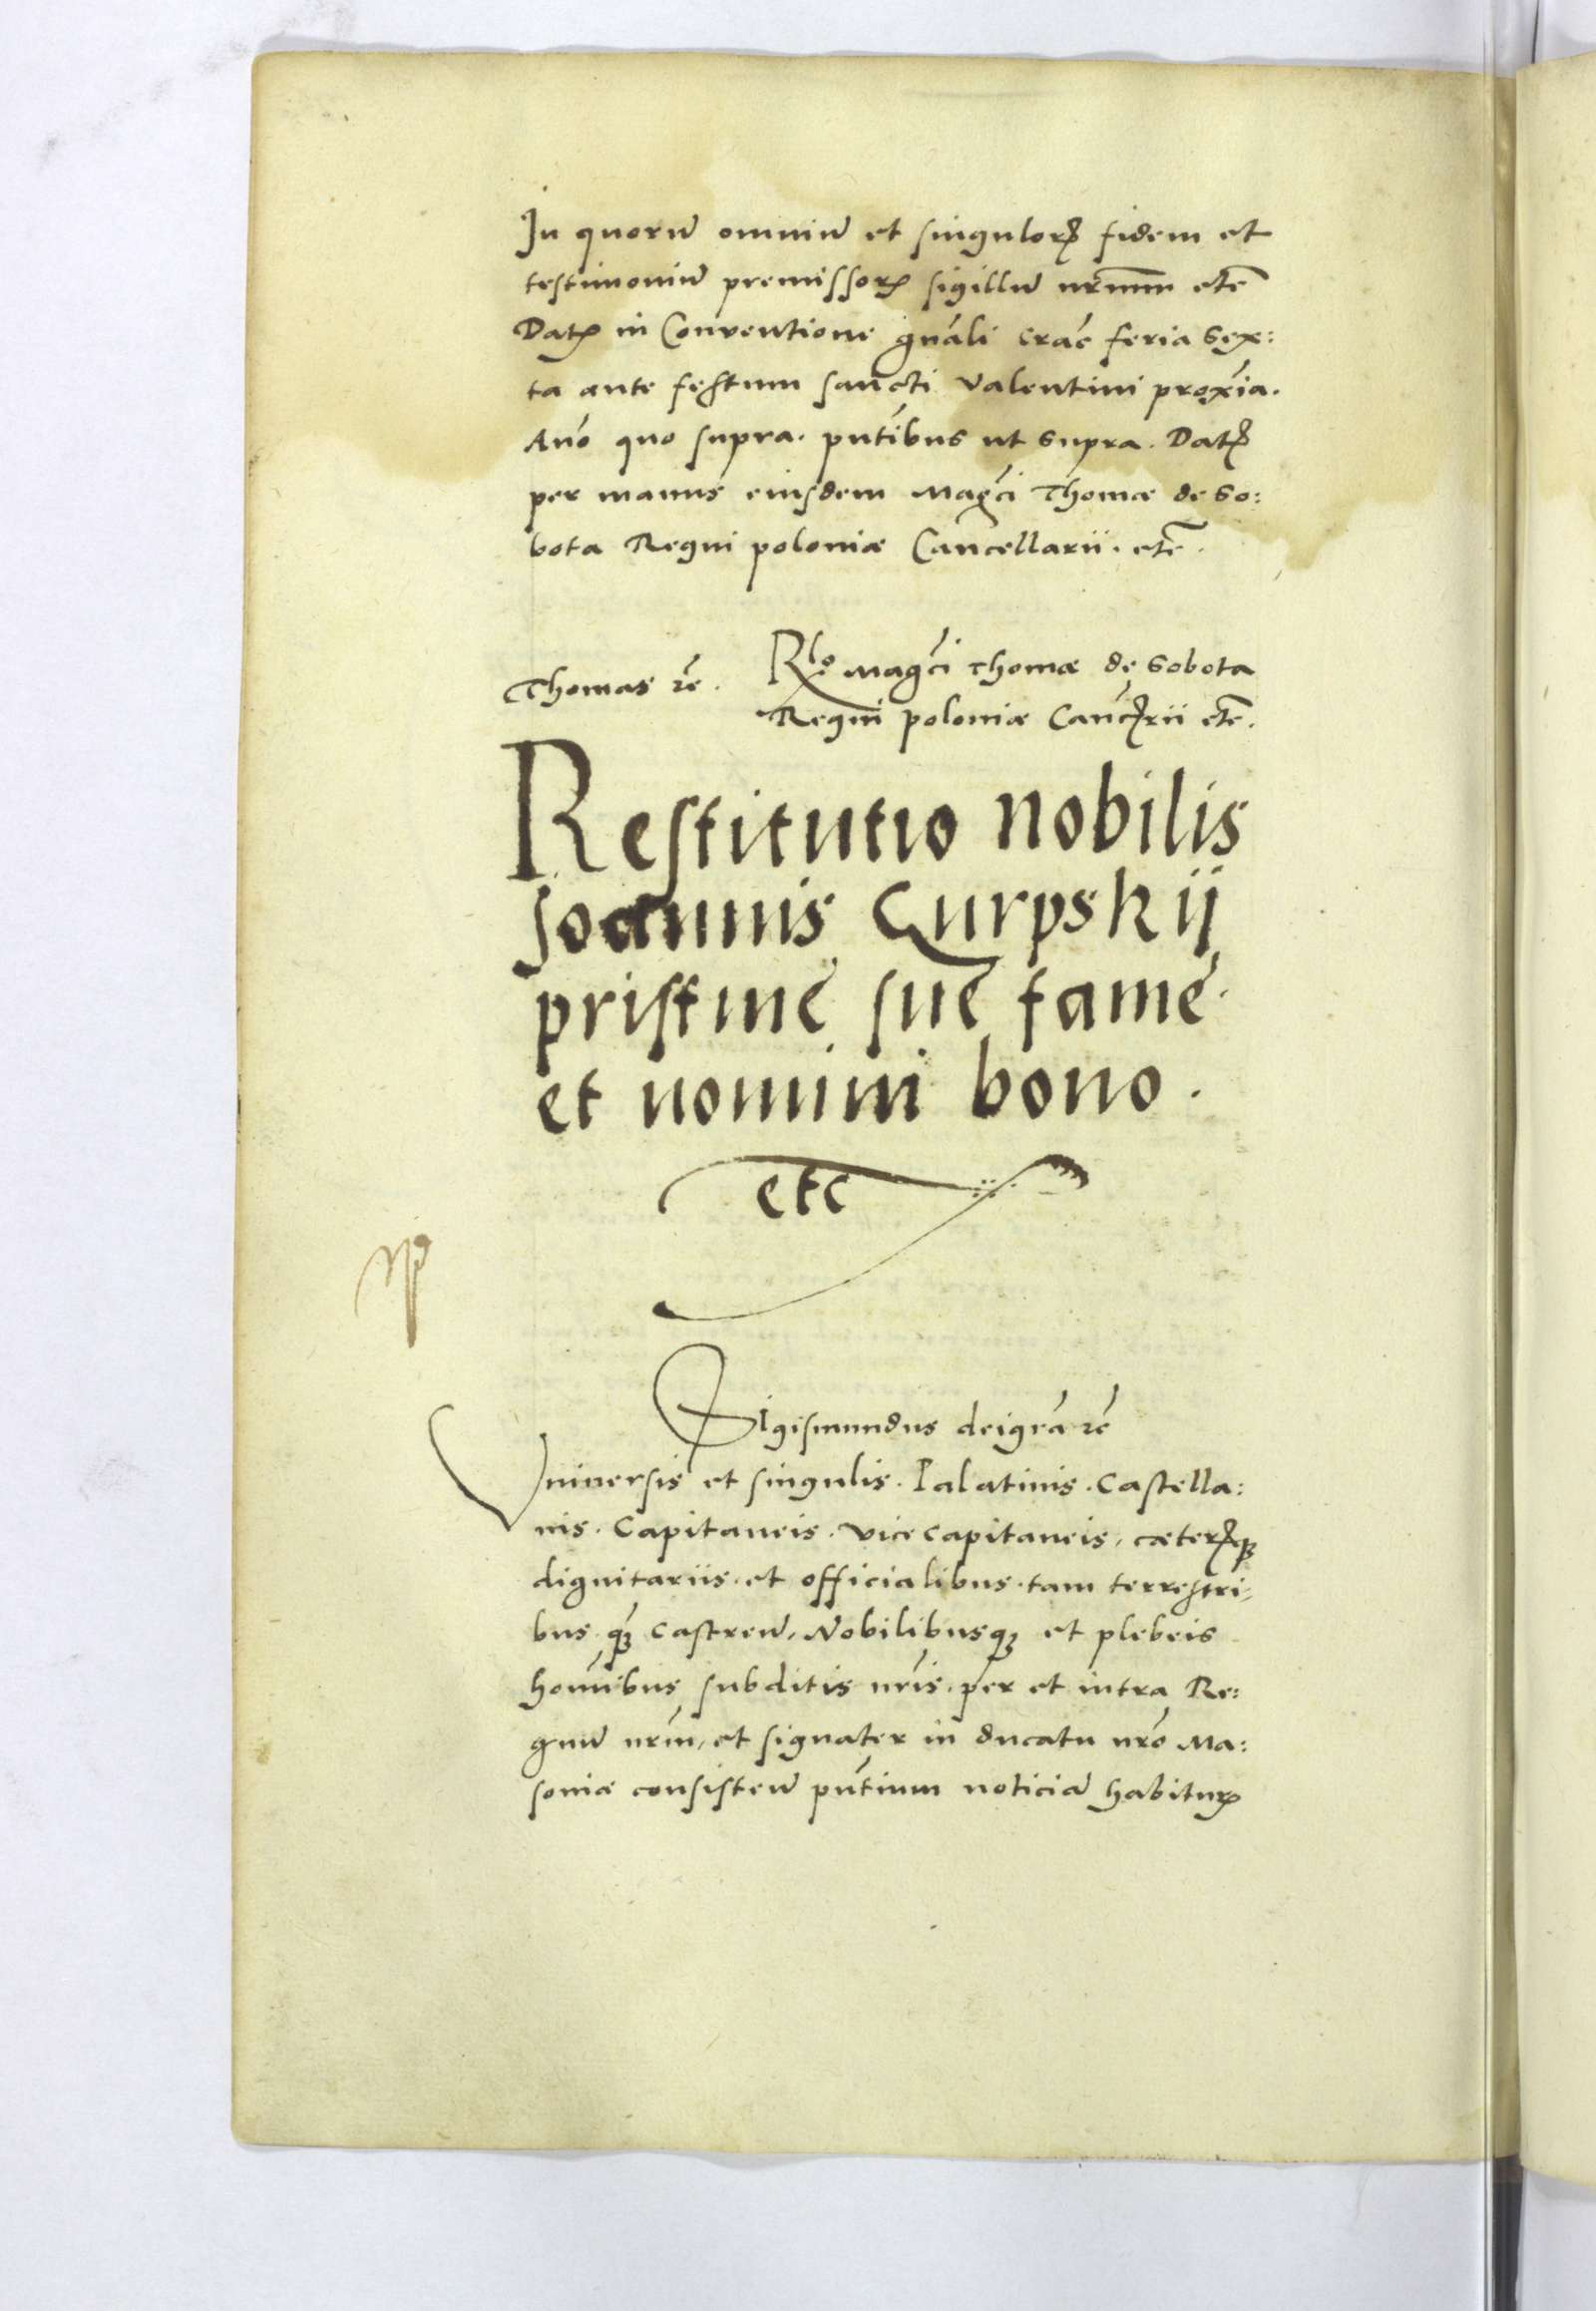 In quoru̅ omniu̅ et singuloꝝ fidem et
testimoniu̅ premissoꝝ sigillu̅ nr̅um etc̅
Datꝝ in Conventione gn̅ali Crac̅ feria Sex:
ta ante festum sancti Valentini prox̅ia.
An̅o quo supra. pn̅tibus ut supra. Datꝝ
per manus eiusdem Mag̅ci Thomæ de So:
bota Regni poloniæ Cancellarii. etc̅.
Thomas rc̅.
Rlo Mag̅ci Thomæ de Sobota
Regni poloniæ Canc̅ꝝrii etc̅.
Restitutio nobilis
Joannis Curpskij
pristinę suę famę
et nomini bono.
etc
Sigismundus dei gr̅a rc̅
Vniversis et singulis. Palatinis. Castella:
nis. Capitaneis. Vicecapitaneis, cæterꝝqꝫ
dignitariis. et officialibus. tam terrestri,
bus qꝫ castren̅, Nobilibusqꝫ et plebeis
homi̅bus subditis nr̅is. per et intra Re:
gnu̅ nr̅m, et signater in ducatu nr̅o Ma:
soniæ consisten̅ pn̅tium noticia̅ habiturꝝ